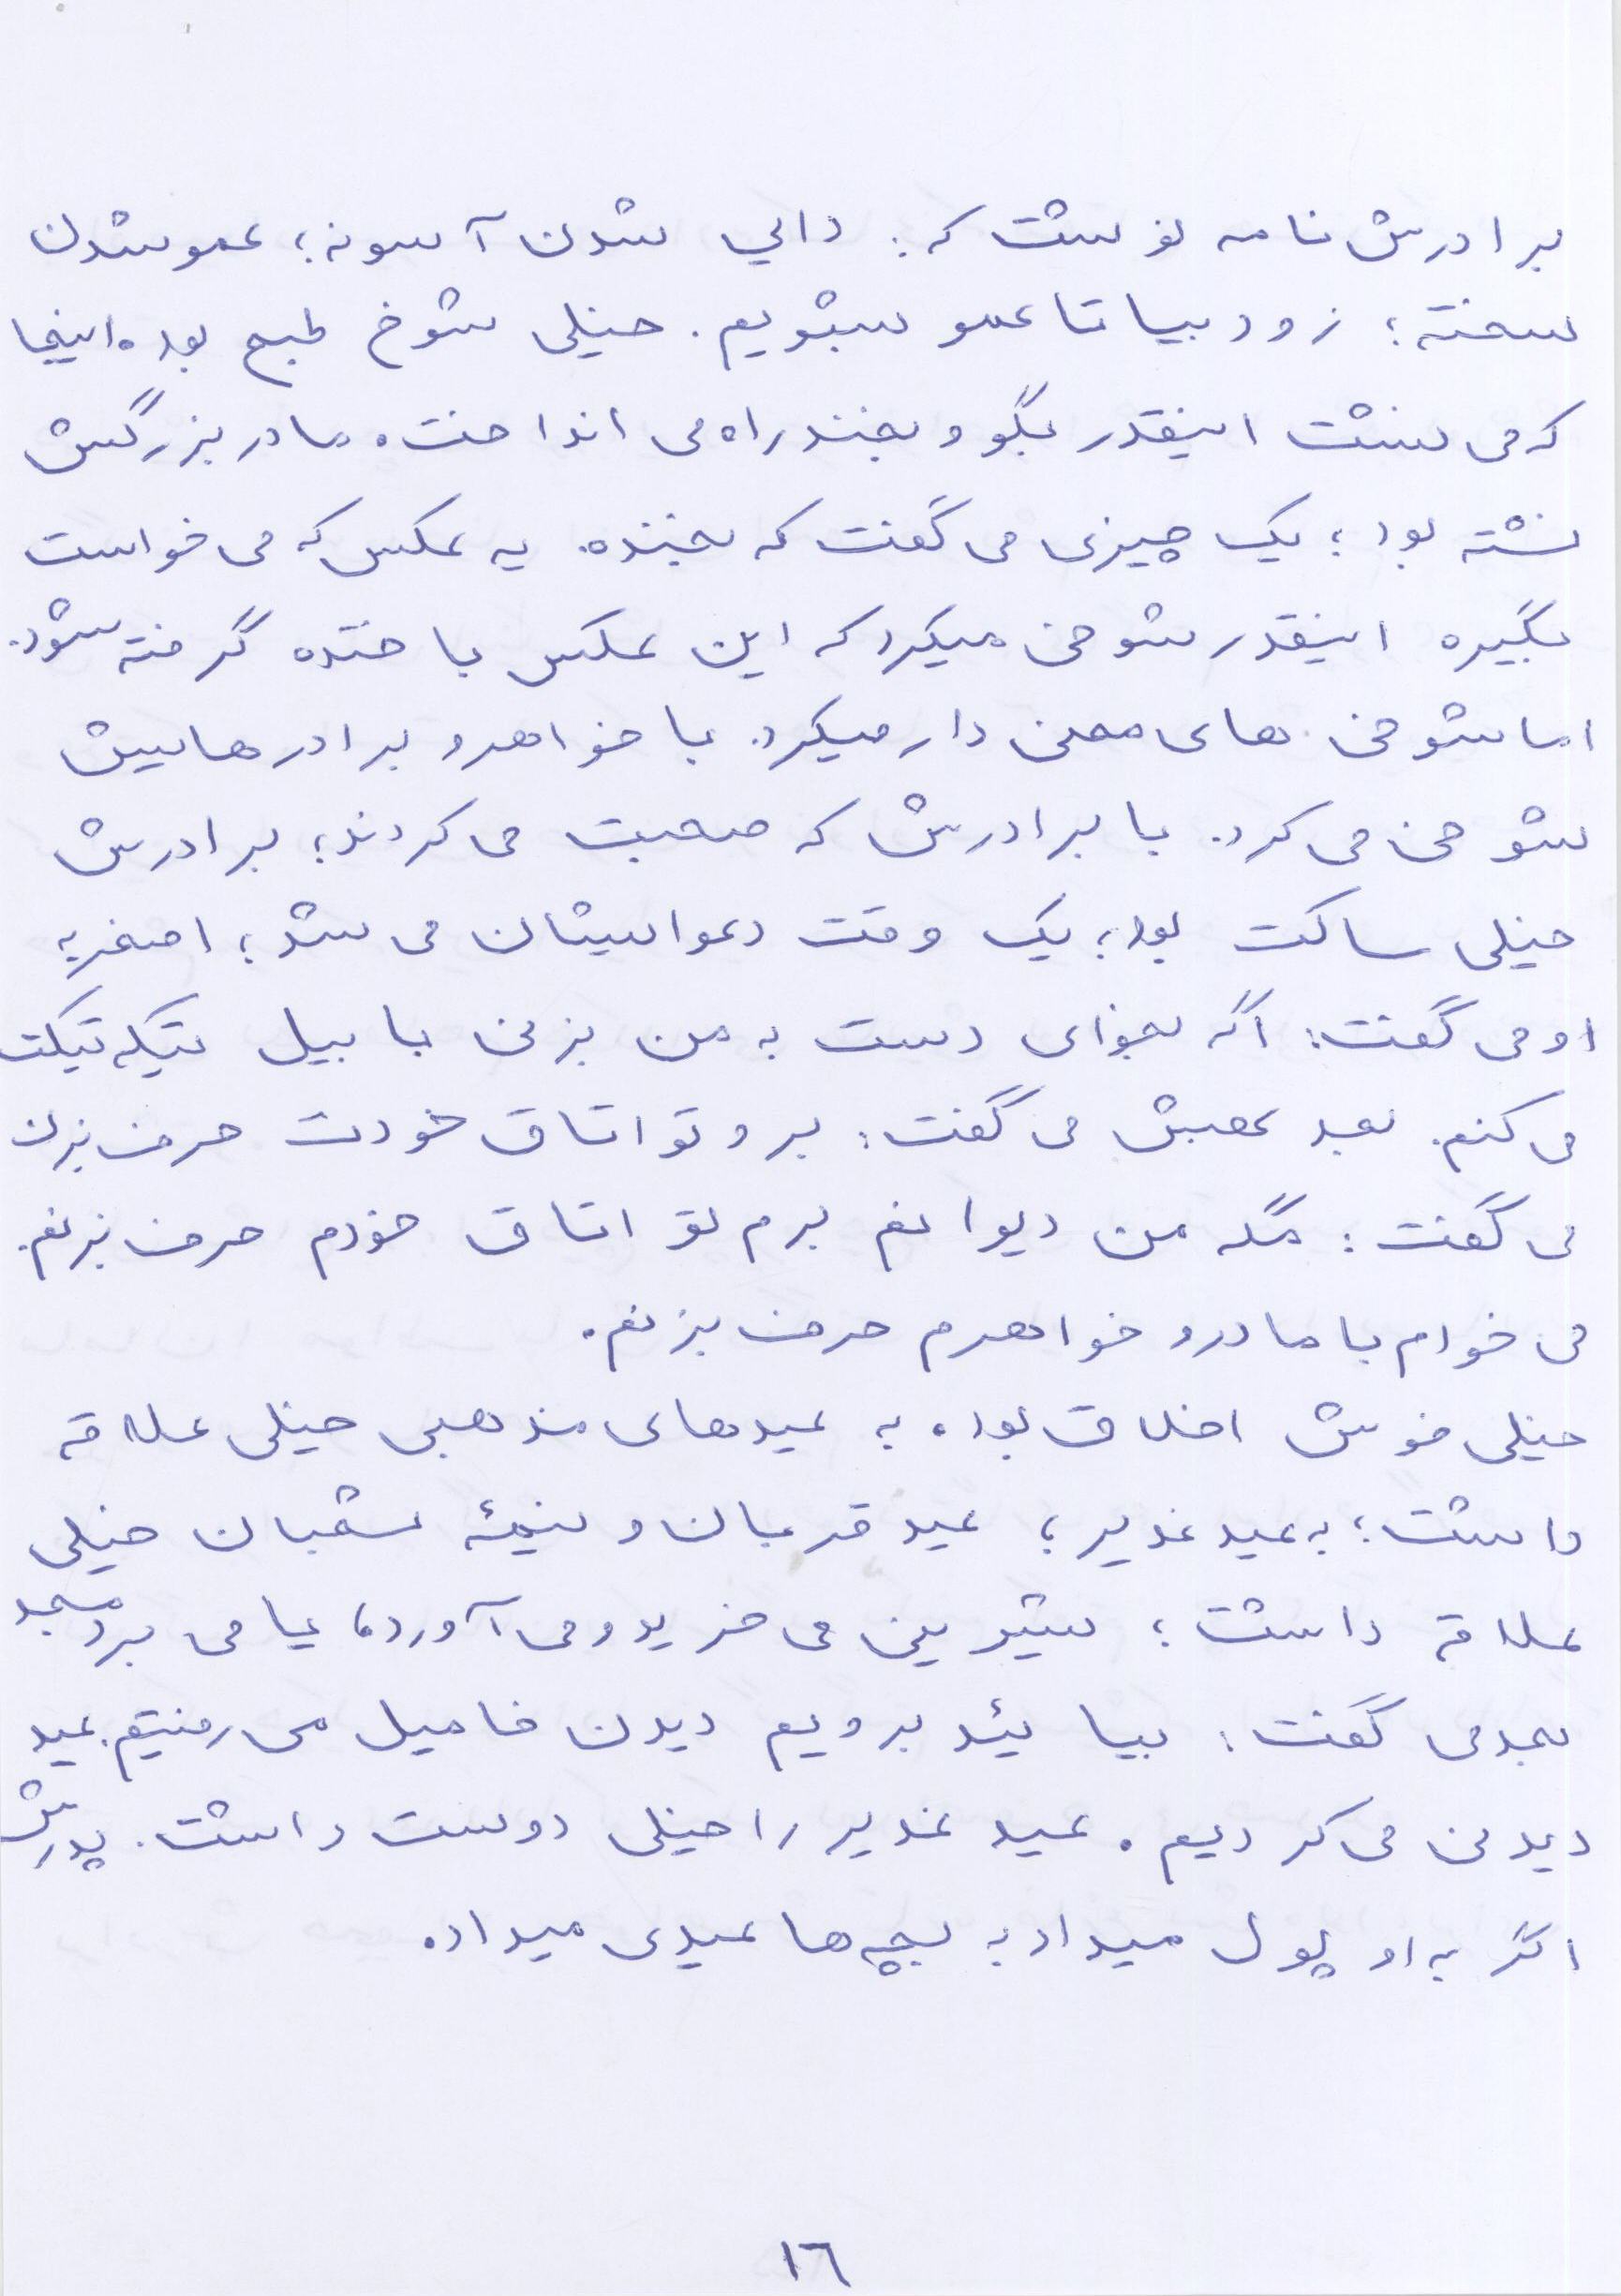 برادرش نامه نوشت که: دایي شدن آسونه؛ عمو شدن
سخته؛ زود بیا تا عمو بشویم. خیلی شوخ طبع بود. اینجا
که می نشست اینقدر بگو و بخند راه می انداخت. مادر بزرگش
نشسته بود؛ یک چیزی می گفت که بخنده. یه عکس که می خواست
بگیره اینقدر شوخی میکرد که این عکس با خنده گرفته شود.
اما شوخی های معنی دار میکرد. با خواهر و برادرهایش
شوخی می کرد. با برادرش که صحبت می کردند؛ برادرش
خیلی ساکت بود؛ یک وقت دعوایشان می شد؛ اصغر به
او می گفت: اگه بخوای دست به من بزنی با بیل تیکه تیکت
می کنم. بعد عمش می گفت: برو تو اتاق خودت حرف بزن
می گفت: مگه من دیوانم برم تو اتاق خودم حرف بزنم.
می خوام با مادر و خواهرم حرف بزنم.
خیلی خوش اخلاق بود. به عیدهای مذهبی خیلی علاقه
داشت؛ به عید غدیر؛ عید قربان و نیمۀ شعبان خیلی
علاقه داشت؛ شیرینی می خرید و می آورد، یا می برد مسجد
بعد می گفت: بیائید برویم دیدن فامیل می رفتیم. عید
دیدنی می کردیم. عید غدیر را خیلی دوست داشت. پدرش
اگر به او پول میداد به بچه ها عیدی میداد.
١٦